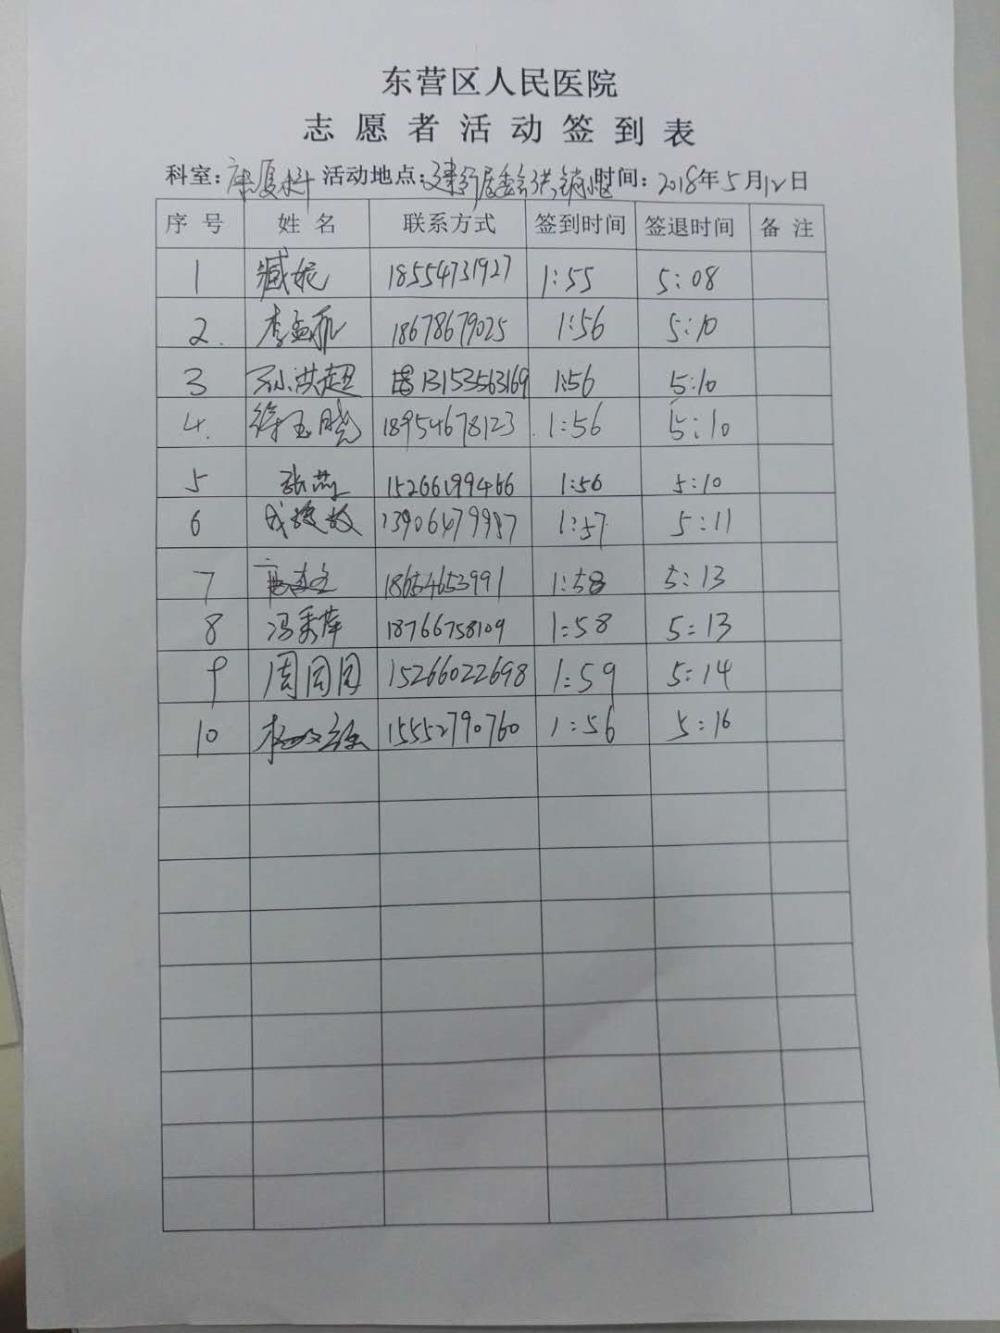 东营区人民医院
志愿者活动签到表
科室: 康复科 活动地点: 时间: 2018年5月12日
序号 姓名 联系方式 签到时间 签退时间 备注
1 臧妮 18554731927 1:55 5:08
2. 李孟 18678679025 1:56 5:10
3 孙洪超 13153563169 1:56 5:10
4. 徐玉晓 18954678123 1:56 5:10
5 张燕 15266199466 1:56 5:10
6 1:57 5:11
7 18654653991 1:58 5:13
8 冯秀萍 18766758109 1:58 5:13
9 周园园 15266022698 1:59 5:14
10 15552790760 1:56 5:16